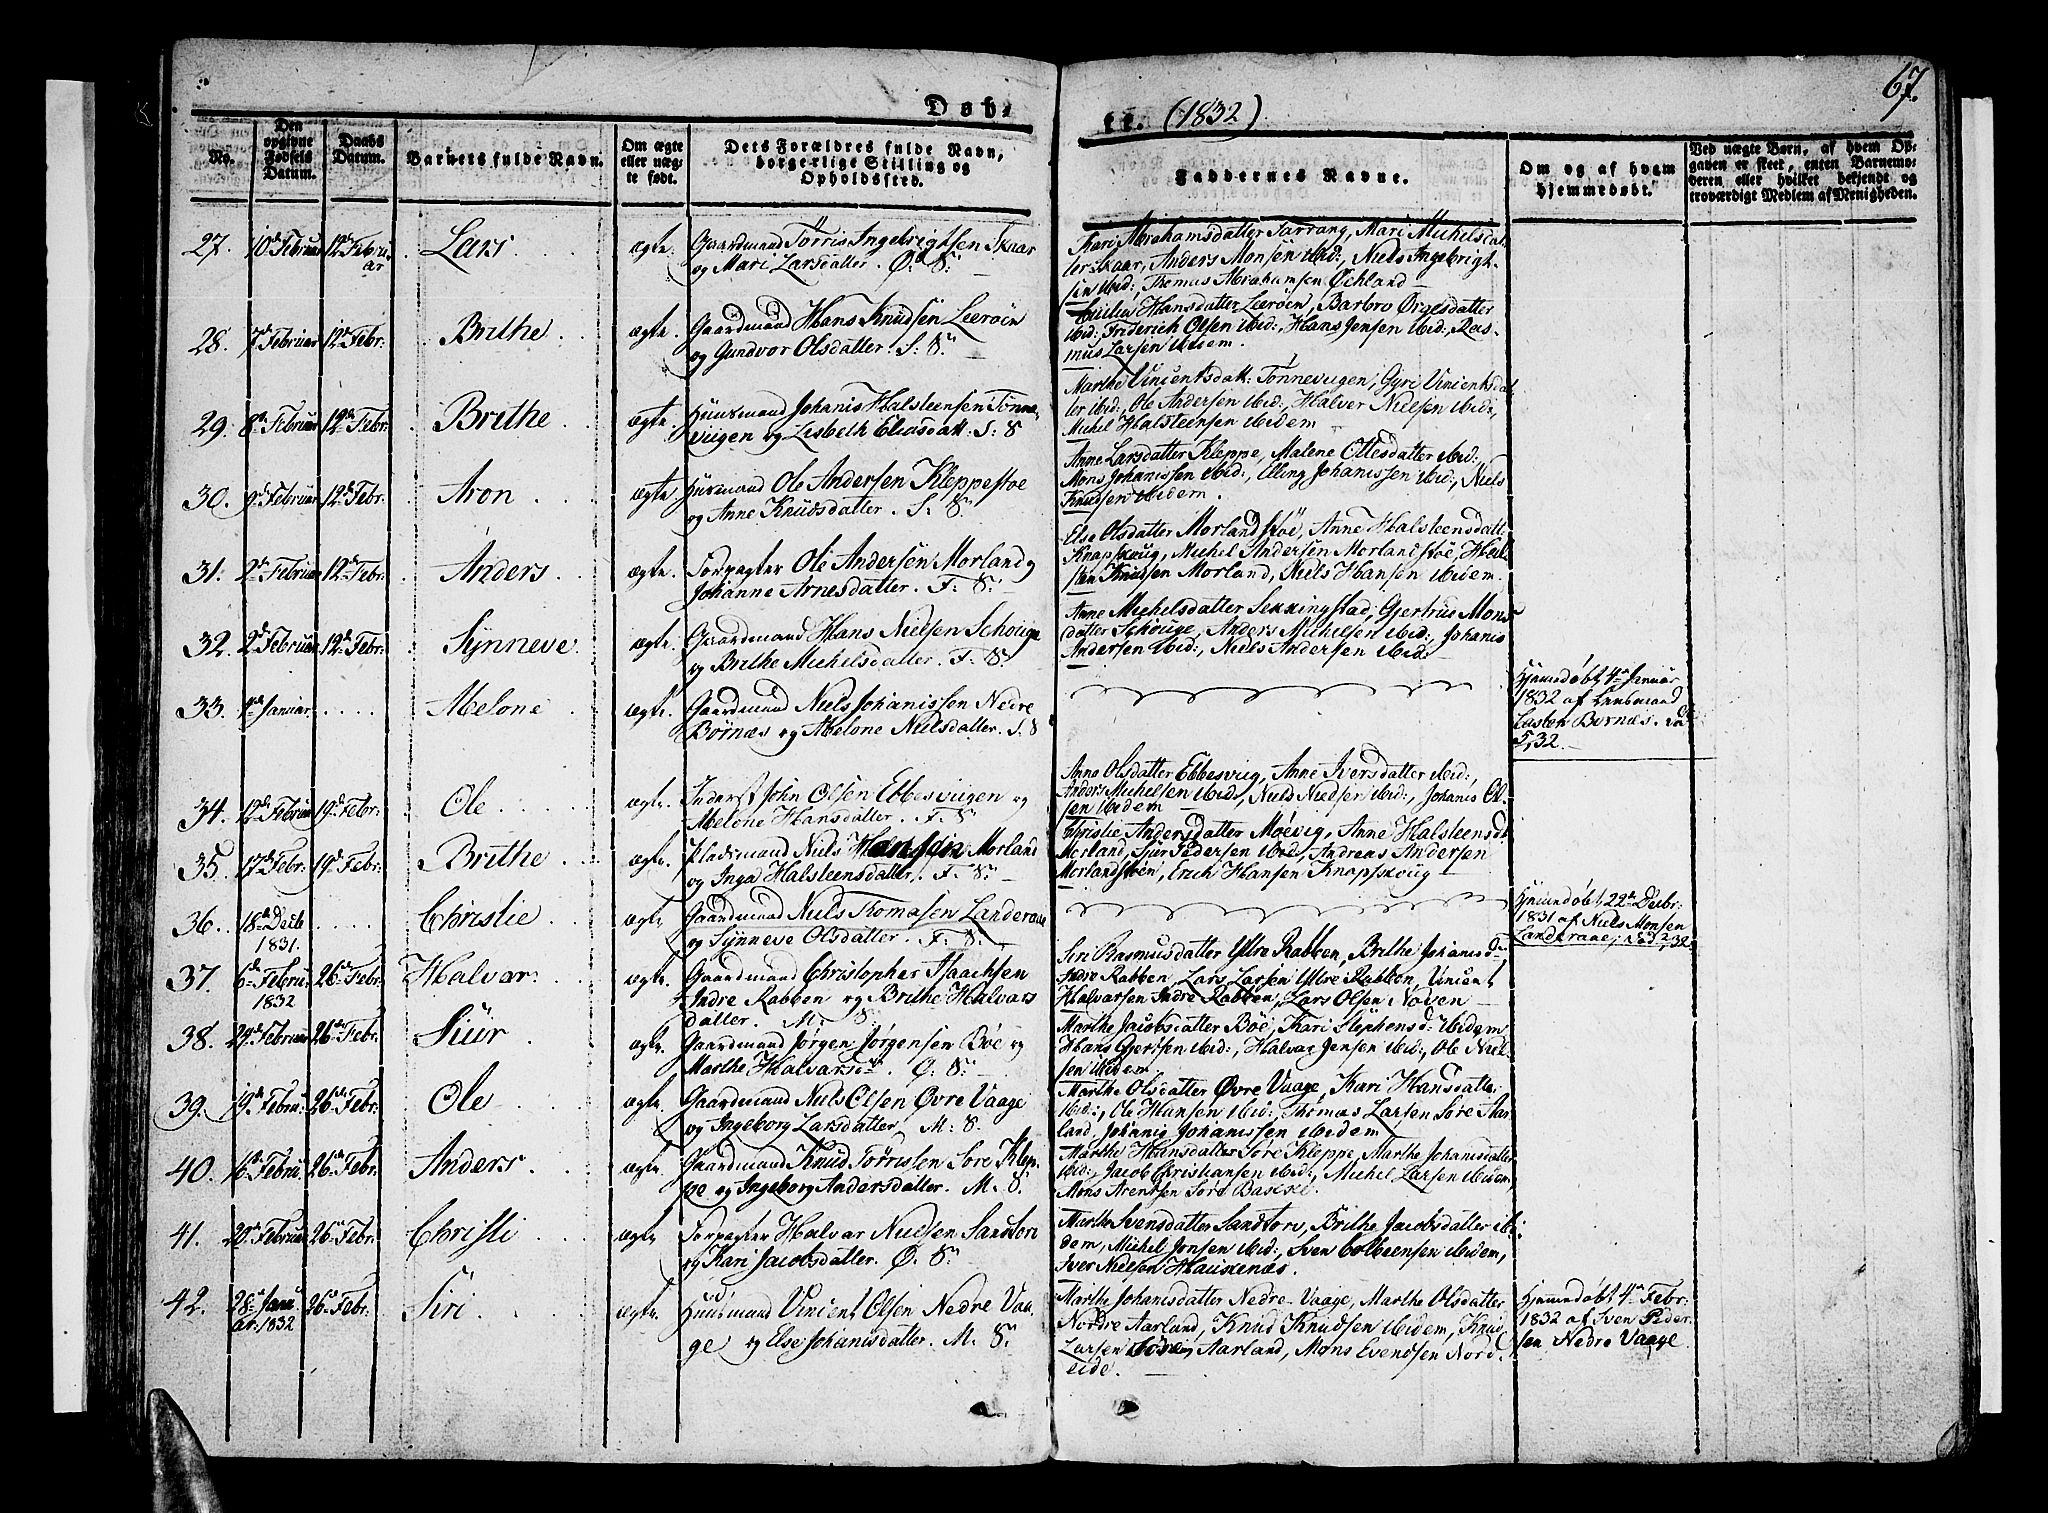 67.
Døb-
te. (1832).
No.
Den opgivne Fødsels Datum.
Daabs Datum.
Barnets fulde Navn.
Om ægte eller uægte født.
Dets Forældres fulde Navn, borgerlige Stilling og Opholdssted.
Faddernes Navne.
Om og af hvem hjemmedøbt.
Ved uægte Børn, af hvem Opgaven er skeet, enten Barnemoderen eller hvilket bekjendt og troværdigt Medlem af Menigheden.
27. 10de Februar 12te Februar Lars ægte. Gaardmand Tørris Ingebrigtsen Skaar
og Mari Larsdatter. Ø: S:
Kari Abrahamsdatter Tarrang, Mari Michelsdat-
ter Skaar, Anders Monsen ibid:, Niels Ingebrigt-
sen ibid:, Thomas Abrahamsen Øchland
28. 7de Februar 12te Febr: Brithe ægte. Gaardmand Hans Knudsen Leerøen
og Gundvor Olsdatter. S: S:
Hansdatter Leerøen, Barbro
ibid:, Friderich Olsen ibid:, Hans Jensen ibid:, Ras-
mus Larsen ibidem.
29. 8de Februar 12te Febr: Brithe ægte. Huusmand Johanis Halsteensen Tønne-
viigen og Lisbeth Eliasdatt: S: S
Marthe Vincentsdatt: Tønnevigen, Gyri Vincentsdat-
ter ibid:, Ole Andersen ibid:, Halver Nielsen ibid:,
Michel Halsteensen ibidem
30. 9de Februar 12te Febr: Aron ægte Huusmand Ole Andersen Kleppestøe
og Anne Knudsdatter. S: S:
Anne Larsdatter Kleppe, Malene Ottesdatter ibid:
Mons Johanissen ibid:, Elling Johanissen ibid:, Niels
Knudsen ibidem.
31. 2de Februar 12te Febr: Anders ægte. Forpagter Ole Andersen Morland og
Johanne Arnesdatter. F: S:
Else Olsdatter Morlandstøe, Anne Halsteensdatt:
Knapskoug, Michel Andersen Morlandstøe,
Knudsen Morland, Niels Hansen ibidem.
32. 2de Februar 12te Febr: Synneve ægte. Gaardmand Hans Nielsen Schouge
og Brithe Michelsdatter. F: S:
Anne Michelsdatter Sekkingstad, Gjertrud Mons-
datter Schouge, Anders Michelsen ibid:, Johanis
Andersen ibid:, Niels Andersen ibid:
33. Januar Abelone ægte. Gaardmand Niels Johanissen Nedre
Børnæs og Abelone Nielsdatter. S: S
Hjemmedøbt 4de Januar
1832 af
Børnæs.
5, 32.
34. 12te Februar 19de Febr: Ole ægte Inderst John Olsen Ebbesviigen og
Abelone Hansdatter. F: S:
Anna Olsdatter Ebbesviig, Anne Iversdatter ibid:,
Anders Michelsen ibid:, Niels Nielsen ibid:, Johanis Ol-
sen ibidem
35. 17de Febr: 19de Febr: Brithe ægte Pladsmand Niels Hansen Morland
og Inga Halsteensdatter. F: S:
Christie Andersdatter Møevig, Anne Halsteensd:
Morland, Siur Pedersen ibid, Andreas Andersen
Morlandstøen, Erich Hansen Knapskoug
36. 18de Decb 1831. Christie ægte Gaardmand Niels Thomasen Landeraae
og Synneve Olsdatter. F: S:
Hjemmedøbt 22de Decbr:
1831 af Niels Monsen
37. 6te Februar 1832 26de Febr: Halvar ægte Gaardmand Christopher Isaachsen
Indre Rabben og Brithe Halvars
datter. M: S:
Siri Rasmusdatter Ytre Rabben, Brithe Johanisd:
Indre Rabben, Lars Larsen Ytre Rabben, Vincent
Halvarsen Indre Rabben, Lars Olsen Noven
38. 24de Februar 26de Febr: Siur ægte. Gaardmand Jørgen Jørgensen Bøe og
Marthe Halvarsdr. Ø: S:
Marthe Jacobsdatter Bøe, Kari Stephensd: ibidem
Hans Gjertsen ibid:, Halvar Jensen ibid:, Ole Niel-
sen ibidem
39. 19de Februar 26de Febr: Ole ægte Gaardmand Niels Olsen Øvre Vaage
og Ingeborg Larsdatter, M: S.
Marthe Olsdatter Øvre Vaage, Kari Hansdatter
ibid:, Ole Hansen ibid:, Thomas Larsen Søre Aar-
land, Johanis Johanissen ibidem
40. 16de Februar 26de Febr: Anders ægte Gaardmand Knud Tørrissen Søre Klep-
pe og Ingeborg Andersdatter. M: S.
Marthe Hansdatter Søre Kleppe, Marthe Johanisdatter
ibid:, Jacob Christiansen ibid:, Michel Larsen ibidem,
Mons Arentsen Søre
41. 20de Februar 26de Febr: Christi ægte Forpagter Halvar Nielsen Sandtorv
og Kari Jacobsdatter. Ø: S:
Marthe Svensdatter Sandtorv, Brithe Jacobsdatter ibi-
dem, Michel Jonsen ibid:, Sven Colbeensen ibidem,
Iver Nielsen Haukenæs.
42. 28de Januar 1832 26de Febr: Siri ægte Huusmand Vincent Olsen Nedre Vaa-
ge og Else Johanisdatter. M: S:
Marthe Johanisdatter Nedre Vaage, Marthe Olsdatter
Nordre Aarland, Knud Knudsen ibidem, Knud
Larsen Søre Aarland, Mons Evendsen Nord-
eide.
Hjemmedøbt 4de Febr:
1832 af Sven Peder-
sen Nedre Vaage